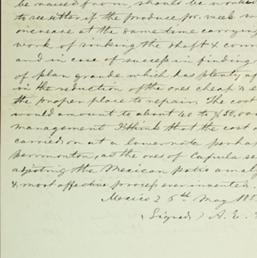 be raised from, should be
to see after if the produce for week
increase at the same time carrying
work of sinking the shaft &
and in case of success in finding
of plan grande which has plenty of
in the reduction of the ores cheap &
the proper place to repair. The cost
would amount to about 40 to $50,00
management I think that the cost
carried on at a lower rate perhaps
per monton, as the ores of Capula
adopting the Mexican patio
& most effective process ever invented.
Mexico 26th May 18
(Signed) A. E.